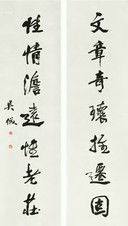 文章奇瓌推遷固
性情澹遠老莊
吳